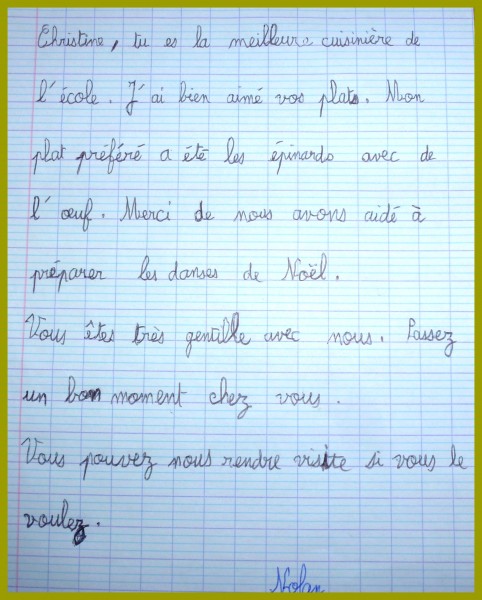 Christine, tu es la meilleure cuisinière de
l'école. J'ai bien aimé vos plats. Mon
plat préféré a été les épinards avec de
l'œuf. Merci de nous avons aidé à
préparer les danses de Noël.
Vous êtes très gentille avec nous. Passez
un bon moment chez vous.
Vous pouvez nous rendre visite si vous le
voulez.
Nolan